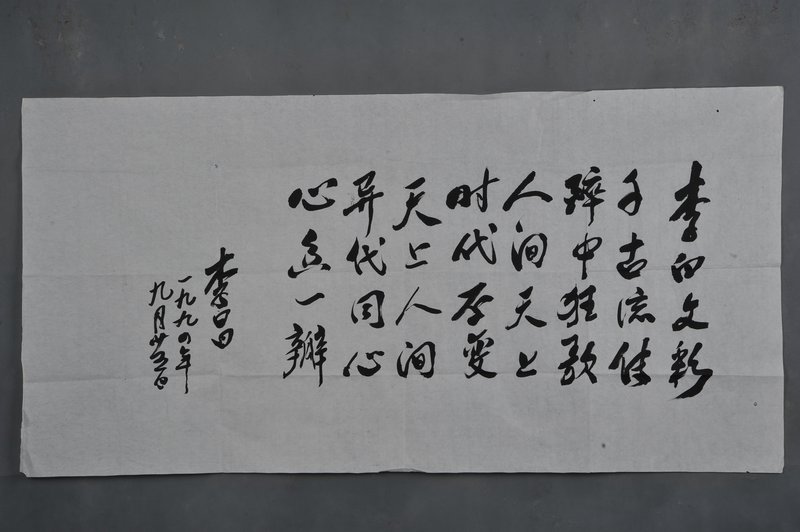 李白文彩
千古流传
醉中狂歌
人间天上
时代变
天上人间
异代同心
心香一瓣
李昌
一九九四年
九月廿五日